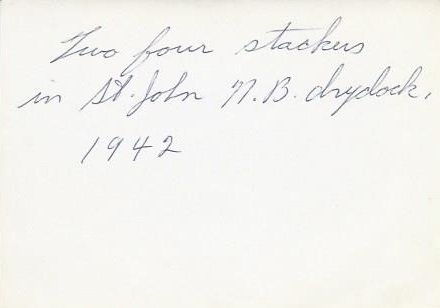 Two four stackers
in St. John N.B. drydock,
1942